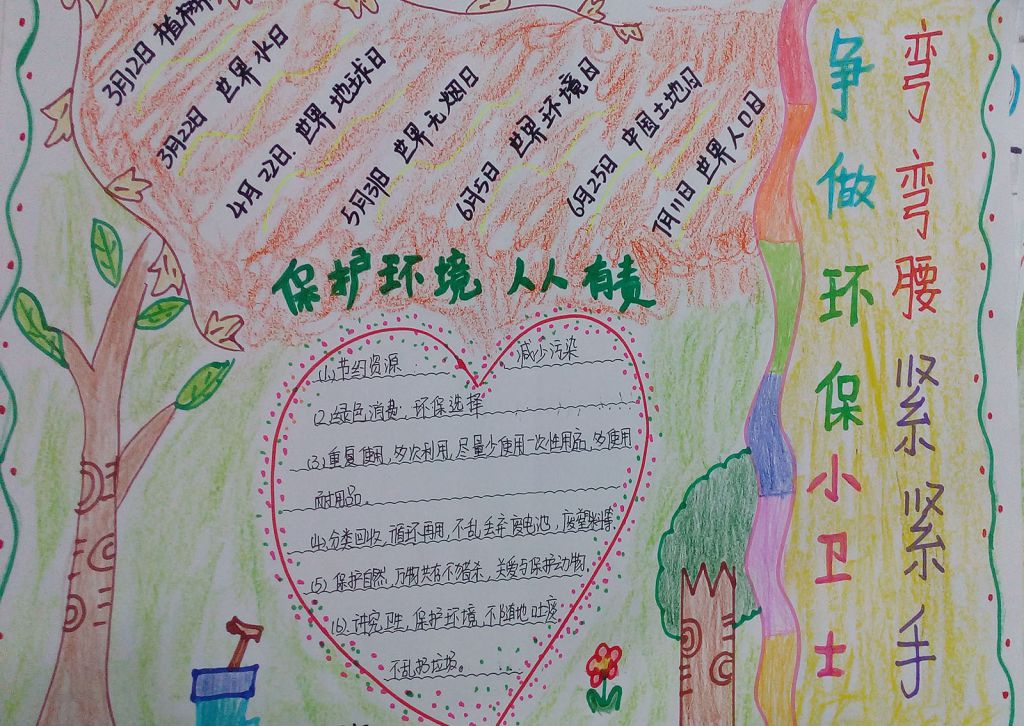 3月12日 植树
3月22日 世界水日
4月22日. 世界地球日
5月31日 世界无烟日
6月5日 世界环境日
6月25日 中国土地日
7月11日 世界人口日
保护环境 人人有责
(1)节约资源 减少污染
(2)绿色消费,环保选择
(3)重复使用,多次利用,尽量少使用一次性用品,多使用
耐用品。
(4)分类回收,循环再用,不乱丢弃废电池,废塑料等
(5)保护自然,万物共存不猎杀,关爱与保护动物.
(6).讲究卫生,保护环境,不随地吐痰
不乱扔垃圾。
弯弯腰紧紧手
争做环保小卫士